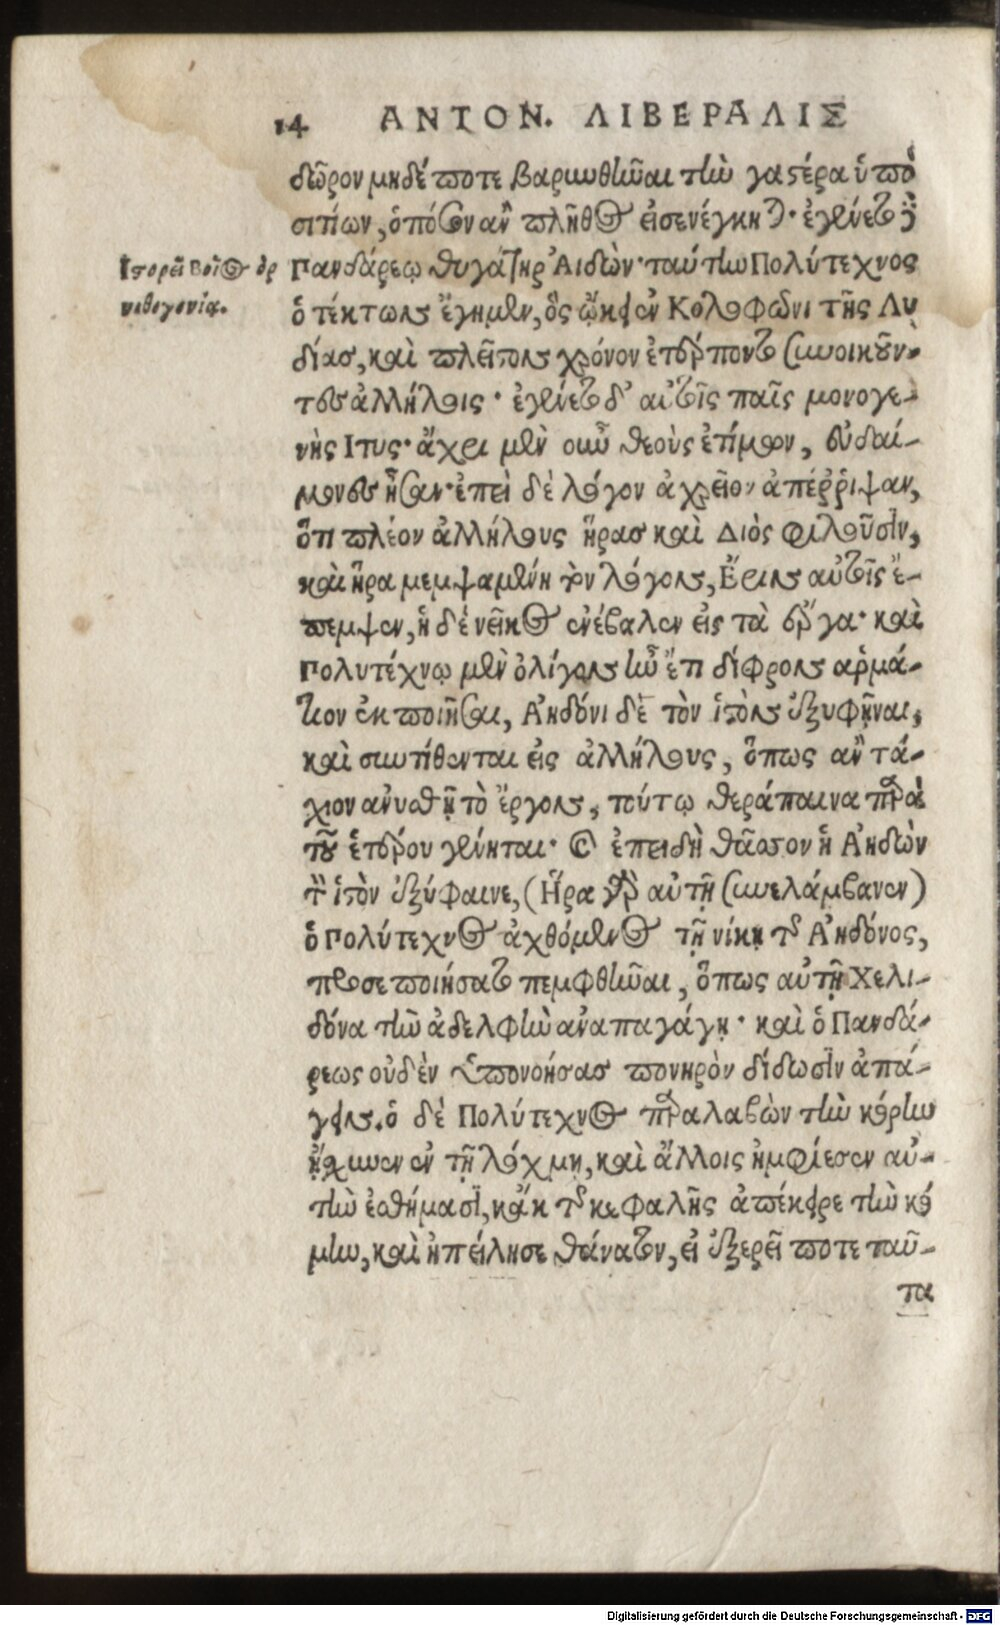 14 ΑΝΤΟΝ. ΛΙΒΕΡΑΛΙΣ
δῶρον μηδέποτε βαρυνθῆναι τὴν γαστέρα ὑπὸ
σιτίων, ὁπόσον ἂν πλῆθος εἰσενέγκηται. ἐγένετο δὲ
Πανδάρεῳ θυγάτηρ Ἀιδὼν. ταύτην Πολύτεχνος
Ἱστορεῖ Βοῖος ὀρ
νιθογονίᾳ.
ὁ τέκτων ἔγημεν, ὃς ᾤκει ἐν Κολοφῶνι τῆς Λυ
δίας, καὶ πλεῖστον χρόνον ἐτέρποντο συνοικοῦν-
τες ἀλλήλοις. ἐγένετο δ' αὐτοῖς παῖς μονογε-
νὴς Ιτυς. ἄχρι μὲν οὖν θεοὺς ἐτίμων, εὐδαί-
μονες ἦσαν. ἐπεὶ δὲ λόγον ἀχρεῖον ἀπέῤῥιψαν,
ὅτι πλέον ἀλλήλους ἥρας καὶ Διὸς φιλοῦσιν,
καὶ ἥρα μεμψαμένη τὸν λόγον, Ἔριν αὐτοῖς ἔ-
πεμψεν, ἡ δὲ νεῖκος ἐνέβαλεν εἰς τὰ ἔργα. καὶ
Πολυτέχνῳ μὲν ὀλίγον ἦν ἔτι δίφρον ἁρμά-
τειον ἐκποιῆσαι, Ἀηδόνι δὲ τὸν ἱστὸν ἐξυφῆναι,
καὶ συντίθενται εἰς ἀλλήλους, ὅπως ἂν τά-
χιον ἀνυσθῇ τὸ ἔργον, τούτῳ θεράπαινα παρὰ
τοῦ ἑτέρου γένηται. καὶ ἐπειδὴ θᾶσσον ἡ Ἀηδὼν
τὸν ἱστὸν ἐξύφαινε, (Ἥρα γὰρ αὐτῇ συνελάμβανεν)
ὁ Πολύτεχνος ἀχθόμενος τῇ νίκῃ τῆς Ἀηδόνος,
προσεποιήσατο πεμφθῆναι, ὅπως αὐτῇ Χελι-
δόνα τὴν ἀδελφὴν ἀναπαγάγῃ. καὶ ὁ Πανδά-
ρεως οὐδὲν ὑπονοήσας πονηρὸν δίδωσιν ἀπά-
γειν. ὁ δὲ Πολύτεχνος παραλαβὼν τὴν κόρην
ᾔσχυνεν ἐν τῇ λόχμῃ, καὶ ἄλλοις ἠμφίεσεν αὐ-
τὴν ἐσθήμασι, κἀκ τῆς κεφαλῆς ἀπέκειρε τὴν κό
μην, καὶ ἠπείλησε θάνατον, εἰ ἐξερεῖ ποτε ταῦ-
τα
Digitalisierung gefördert durch die Deutsche Forschungsgemeinschaft - DFG